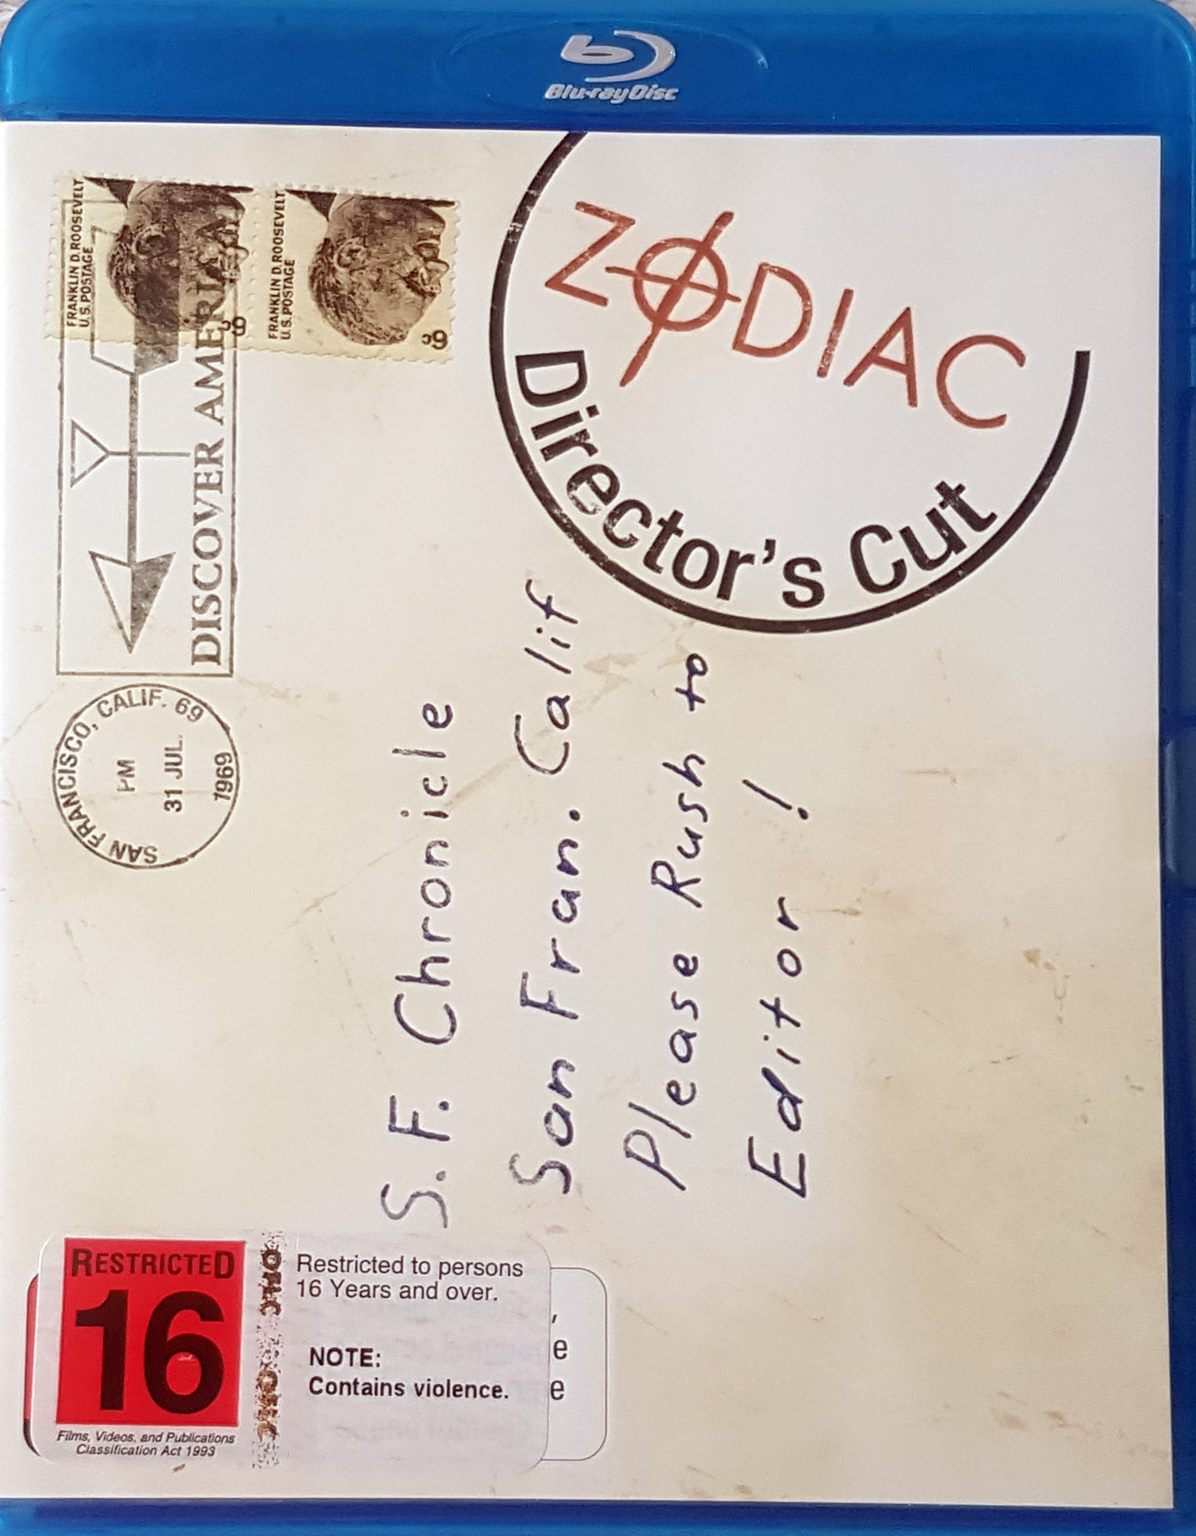 Blu-ray Disc
FRANKLIN D. ROOSEVELT
U.S. POSTAGE
6c
FRANKLIN D. ROOSEVELT
U.S. POSTAGE
6c
DISCOVER AMERICA
SAN FRANCISCO, CALIF. 69
PM
31 JUL.
1969
ZODIAC
Director's Cut
S.F. Chronicle
San Fran. Calif
Please Rush to
Editor !
RESTRICTED
16
Films, Videos, and Publications
Classification Act 1993
Restricted to persons
16 Years and over.
NOTE:
Contains violence.
,
e
e